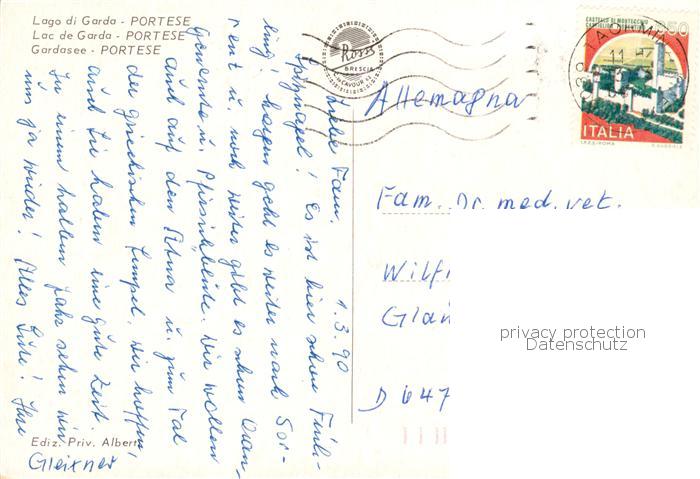 Lago di Garda - PORTESE
Lac de Garda - PORTESE
Gardasee - PORTESE
Ross
BRESCIA
CAVOUR
CASTELLO DI MONTECCHIO
ITALIA
1.3.90
Liebe Fam.
Spitznagel! Es ist hier schon Früh-
ling! Morgen geht es weiter nach Sor-
rent u. noch weiter gibt es schon Oran-
genernte u. Pfirsichblüte. Wir wollen
auch auf den Ätna u. zum Tal
der griechischen Tempel. Wir hoffen,
auch Sie haben eine gute Zeit.
In einem halben Jahr sehen wir
uns ja wieder! Alles Gute! Ihre
Gleixner
Ediz. Priv. Albert
Allemagna
Fam. Dr. med. vet.
Wilf
D 647
privacy protection
Datenschutz